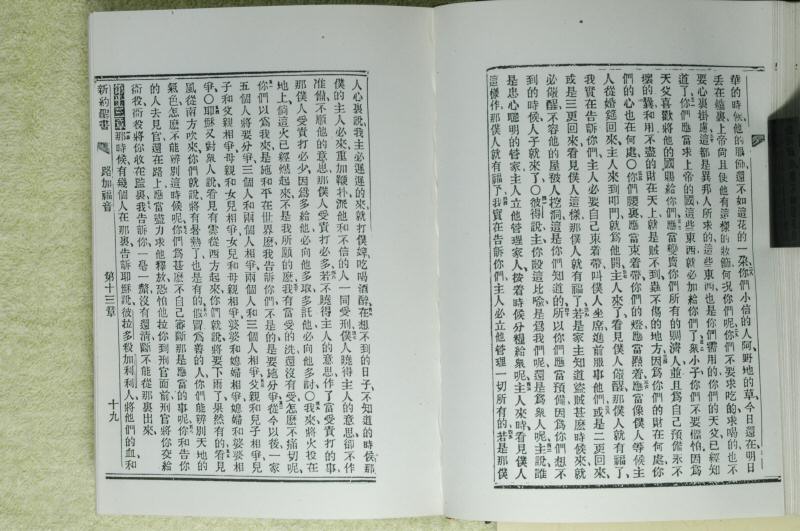 華的時候他的服飾還不如這花的一朵你們小信的人阿野地的草今日還在明日
丟在爐裏上帝尚且使他有這樣的妝飾何況你們呢你們不要求吃的求喝的也不
要心裏掛慮這都是異邦人所求的這些東西也是你們需用的你們的天父已經知
道了你們應當求上帝的國這些東西就必加給你們了衆小子你們不要懼怕因爲
天父喜歡將他的國賜給你們應當變賣你們所有的賙濟人並且爲自己預備永不
壞的錢和用不盡的財在天上就是賊不到蟲不傷的地方因爲你們的財在何處你
們的心也在何處○你們腰裏應當束着帶你們的燈應當點着應當像僕人等候主
人從婚筵回來主人來到叩門就爲他開主人來了看見僕人儆醒那僕人就有福了
我實在告訴你們主人必要自己束着帶叫僕人坐席進前服事他們或是二更回來
或是三更回來看見僕人這樣那僕人就有福了若是家主知道盜賊甚麽時候來就
必儆醒不容他的屋被人挖洞這是你們知道的所以你們應當預備因爲你們想不
到的時候人子就來了○彼得說主你設這比喻是爲我們呢還是爲衆人呢主說誰
是忠心聰明的管家主人立他管理家人按着時候分糧給衆呢主人來時看見僕人
這樣作那僕人就有福了我實在告訴你們主人必立他管理一切所有的若是那僕
人心裏說我主必遲遲的來就打僕婢吃喝酒醉在想不到的日子不知道的時候那
僕的主人必來重加鞭扑派他和不信的人一同受刑僕人曉得主人的意思卻不作
准備不順他的意思那僕人受責打必多若不曉得主人的意思作了當受責打的事
那僕人受責打必少因爲多給他必向他多取多託他必向他多討○我來將火投在
地上倘這火已經燃起來不是我所願的麽我有當受的洗還沒有受怎麽不痛切呢
你們以爲我來是施和平在世界麽我告訴你們不是的是要施分爭從今以後一家
五個人將要分爭三個人和兩個人相爭兩個人和三個人相爭父親和兒子相爭兒
子和父親相爭母親和女兒相爭女兒和母親相爭婆婆和媳婦相爭媳婦和婆婆相
爭○耶穌又對衆人說看見有雲從西方起來你們就說將要下雨了果然有的看見
風從南方吹來你們就說將有暑熱了也是有的假冒爲善的人你們能辨別天地的
氣色怎麽不能辨別這時候呢你們爲甚麽不自己審斷那是應當的事呢你和告你
的人去見官還在路上應當盡力求他釋放恐怕他拉你到刑官面前刑官將你交給
衙役衙役將你收在監裏我告訴你一毫一釐沒有還清斷不能從那裏出來
第十三章那時候有幾個人在那裏告訴耶穌說彼拉多殺加利利人將他們的血和
新約聖書 路加福音 第十三章 十九